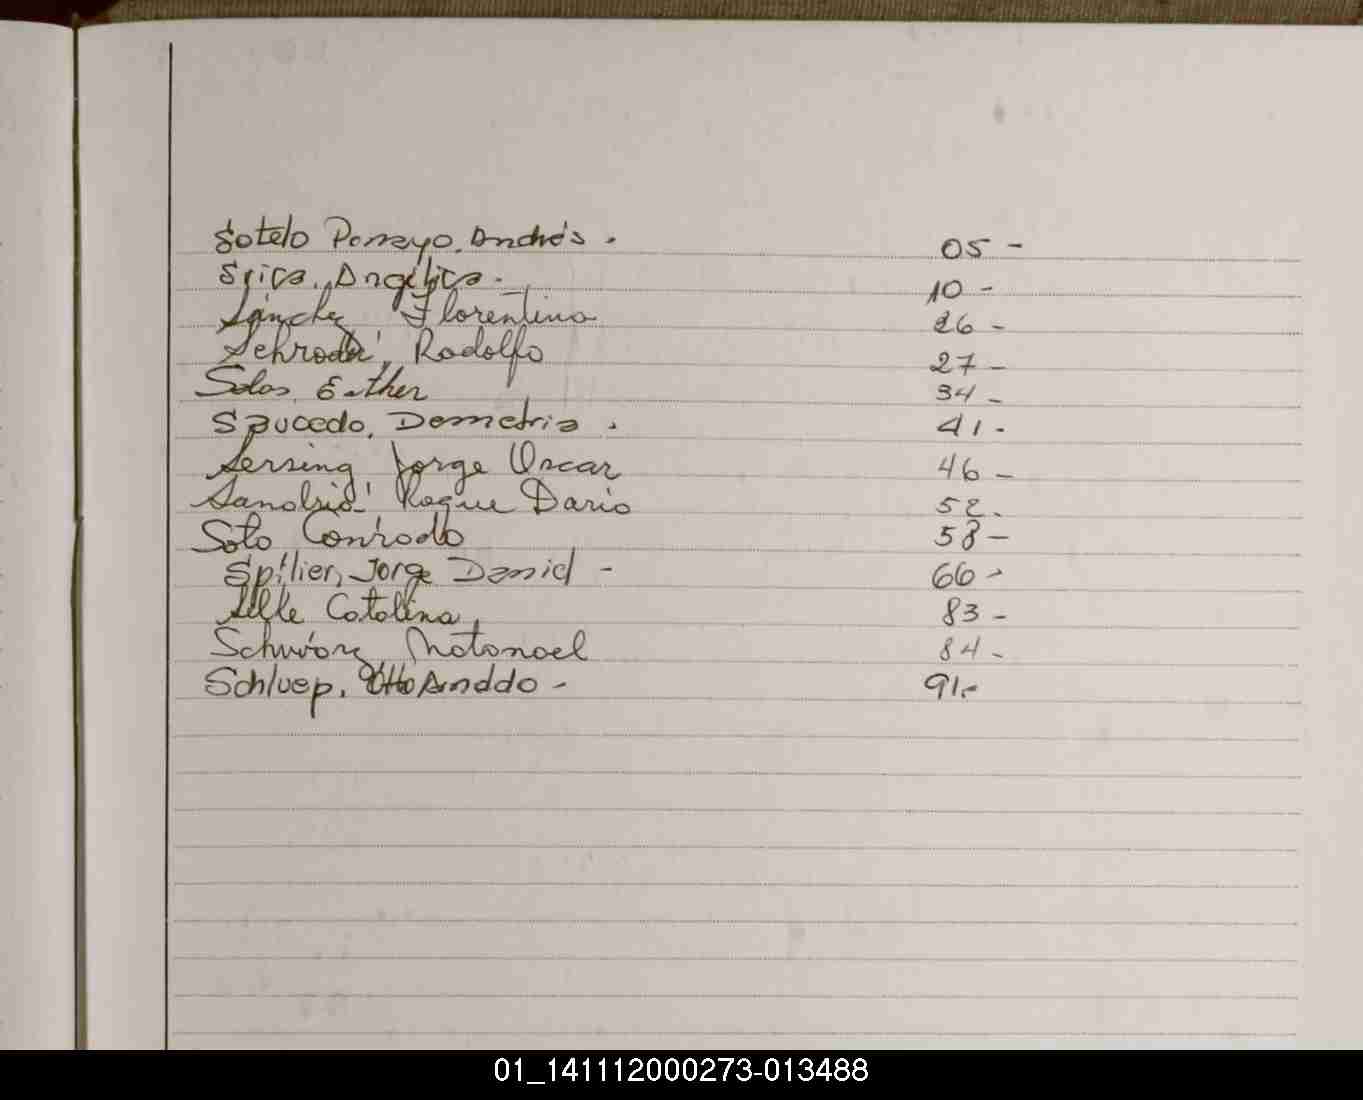 Sotelo Pomayo, Andrés. 05 -
Spica, Angélica - 10 -
Sánchez Florentino 26 -
Rodolfo 27 -
Salas, Esther 34 -
Saucedo, Demetria . 41 -
Sersing Jorge Oscar 46 -
Sanabria Roque Dario 52.
Soto Conrado 58 -
Spillier, Jorge Daniel - 66 -
Selle Catalina 83 -
Schwarz Natanael 84 -
Schluep, Otto Arnoldo - 91.-
01_141112000273-013488